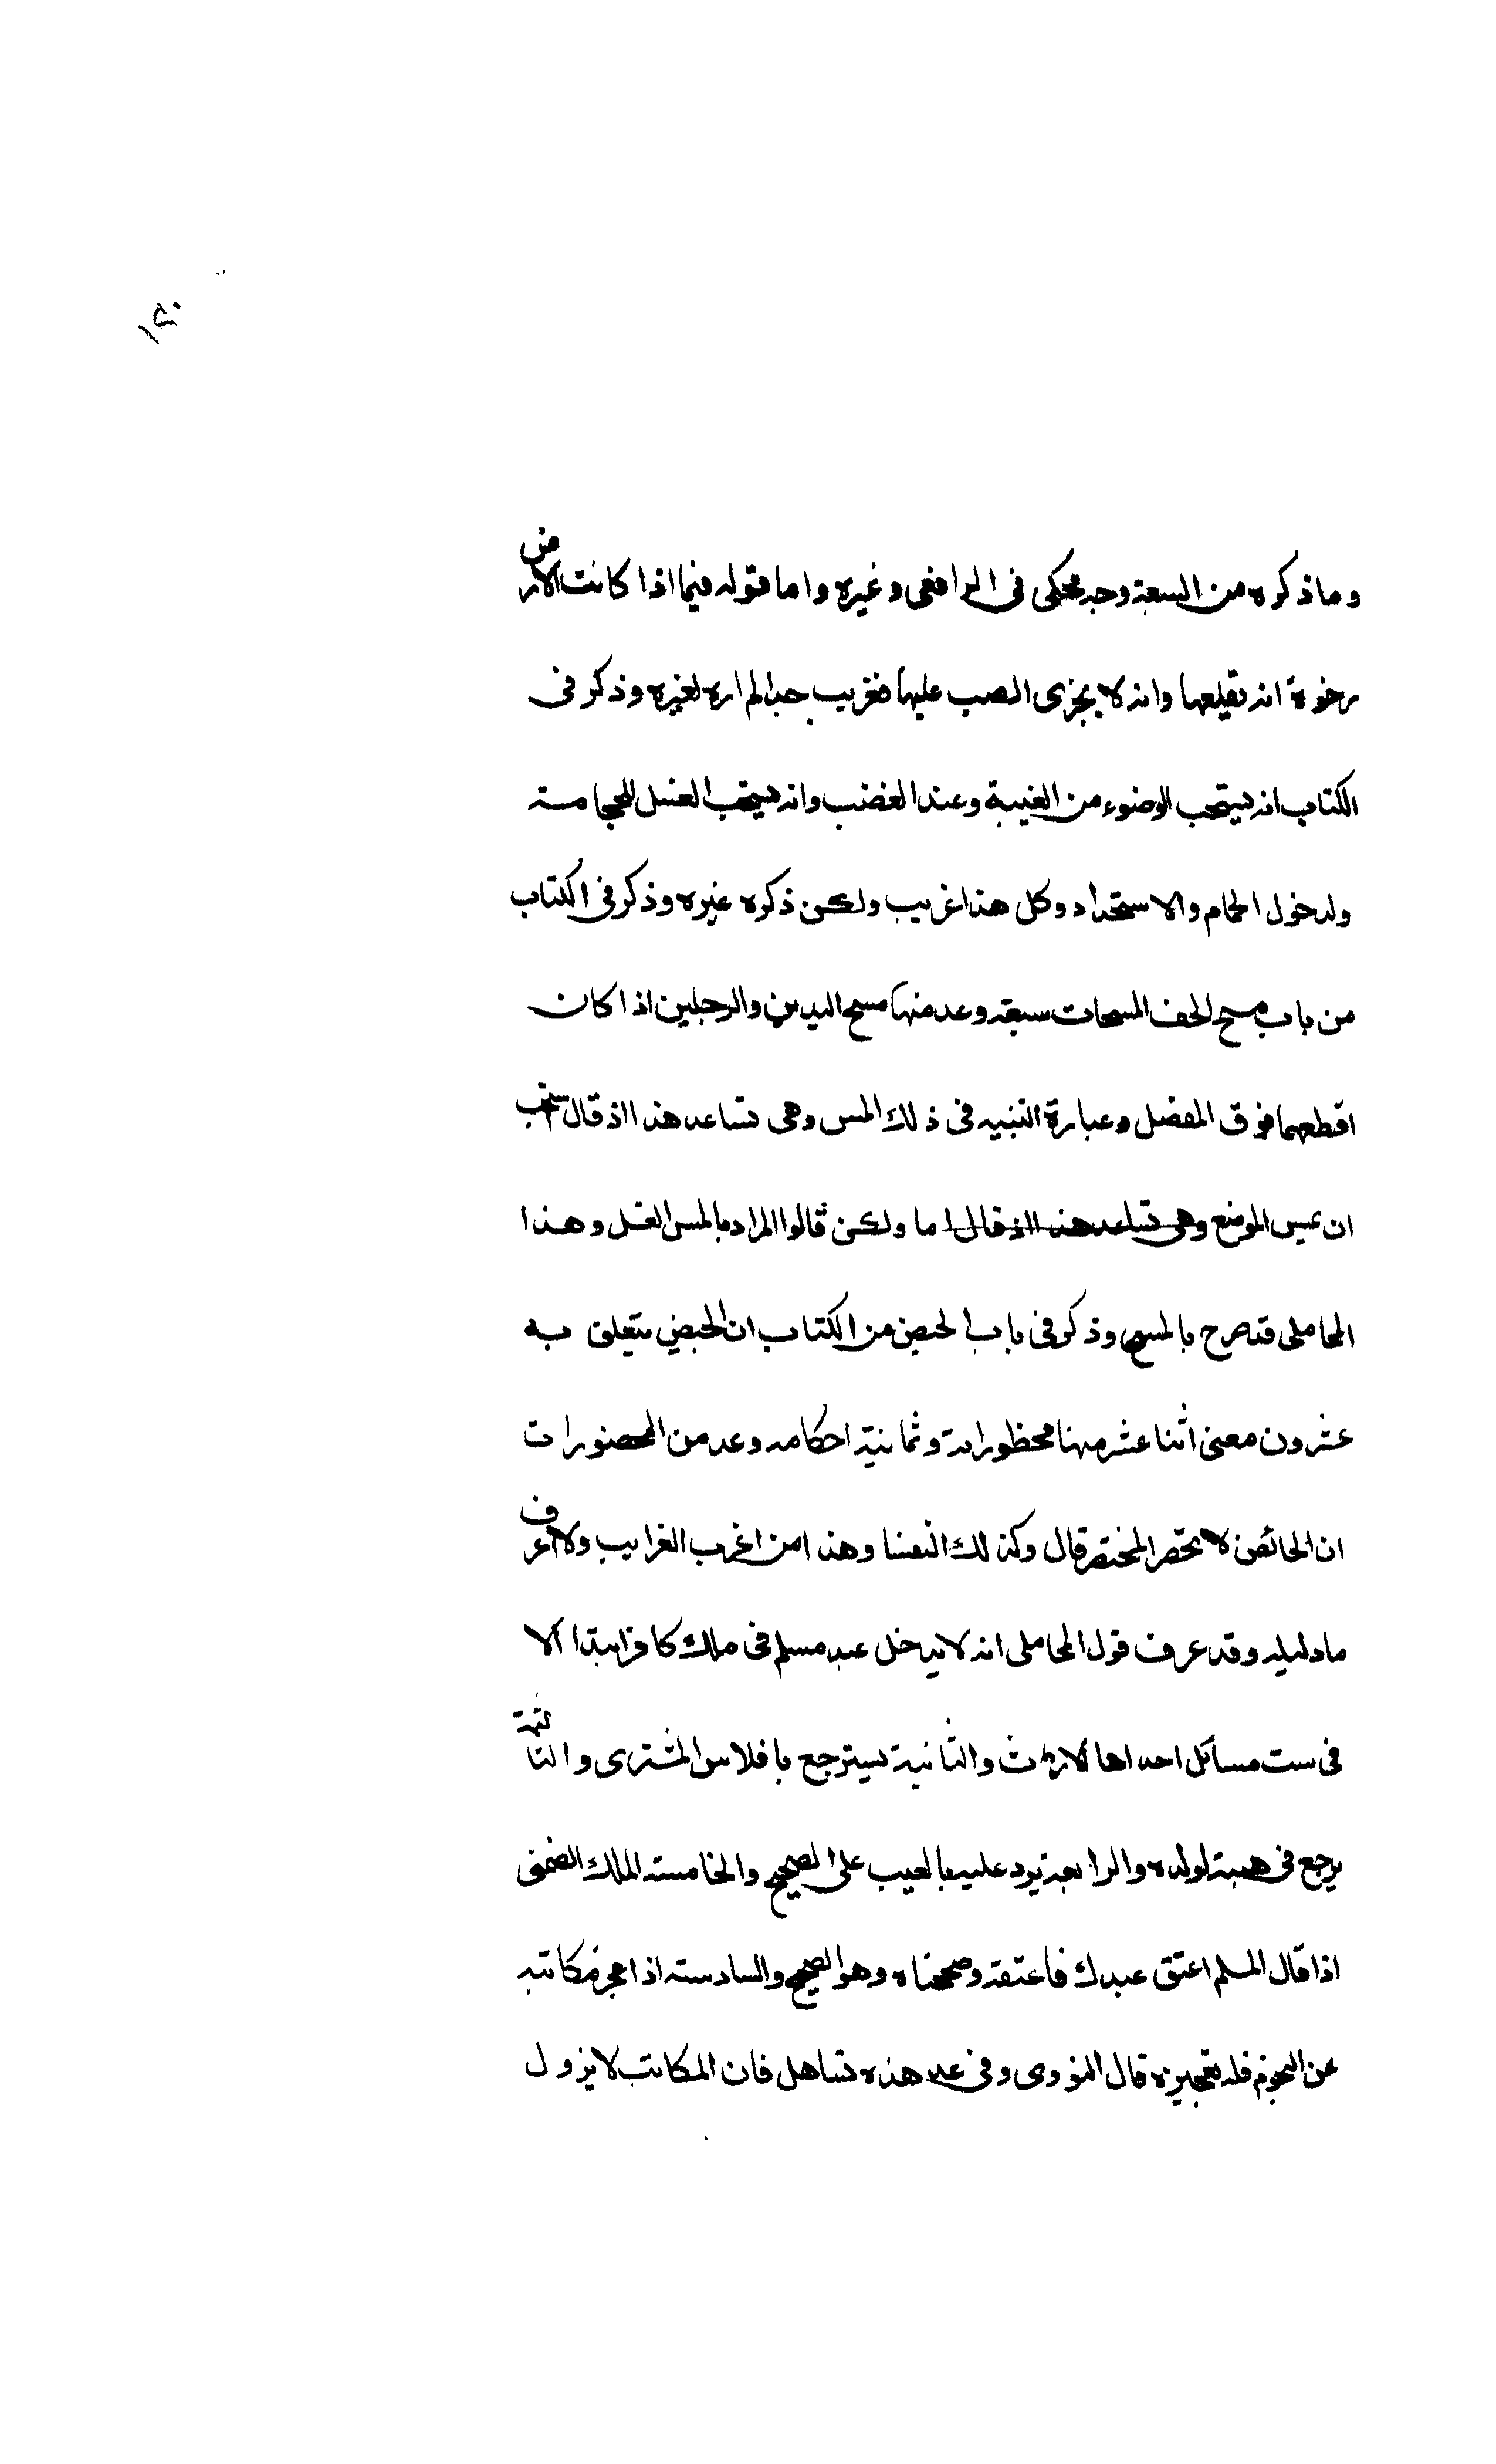 وما ذكره من السبعة وجه محكي في الرافعي وغيره واما قوله فيما اذا كانت الارض
رخوة انه يقلعها وانه لا يجزى الصب عليها فغريب جدا لم اره لغيره وذكر في
الكتاب انه يستحب الوضوء من الغيبة وعند الغضب وانه يستحب الغسل للحجامسة
ولدخول الحمام والاستحداد وكل هذا غريب ولكن ذكره غيره وذكر في الكتاب
من باب مسح الخف المسحات سبعة وعد منها مسح اليدين والرجلين اذا كان
اقطعهما فوق المفصل وعبارة التنبيه في ذلك المس وهي تساعد هذا اذ قال استحب
ان يمس الموضع وهي تساعد هذا اذ قال اما ولكن قالوا المراد بالمس الغسل وهذا
المحاملي قد صرح بالمسح وذكر في باب الحيض من الكتاب ان الحيض يتعلق به
عشرون معنى اثنا عشر منها محظورات وثمانية احكامه وعد من المحضورات
ان الحائض لا تحضر المحتضر قال وكذلك النفسا وهذا من اغرب الغرايب ولا اعرف
ما دليله وقد عرف قول المحاملي انه لا يدخل عبد مسلم في ملك كافر ابتدا الا
في ست مسائل احداها الارث والثانية يسترجع بافلاس المشترى والثالثة
يرجع في هبته لولده والرابعة يرد عليه بالعيب على الصحيح والخامسة الملك الضمني
اذا قال المسلم اعتق عبدك فاعتقه وصححناه وهو الصحيح والسادسة اذا عجز مكاتبه
عن النجوم فله تعجيزه قال النووي وفي عد هذه تساهل فان المكاتب لا يزول